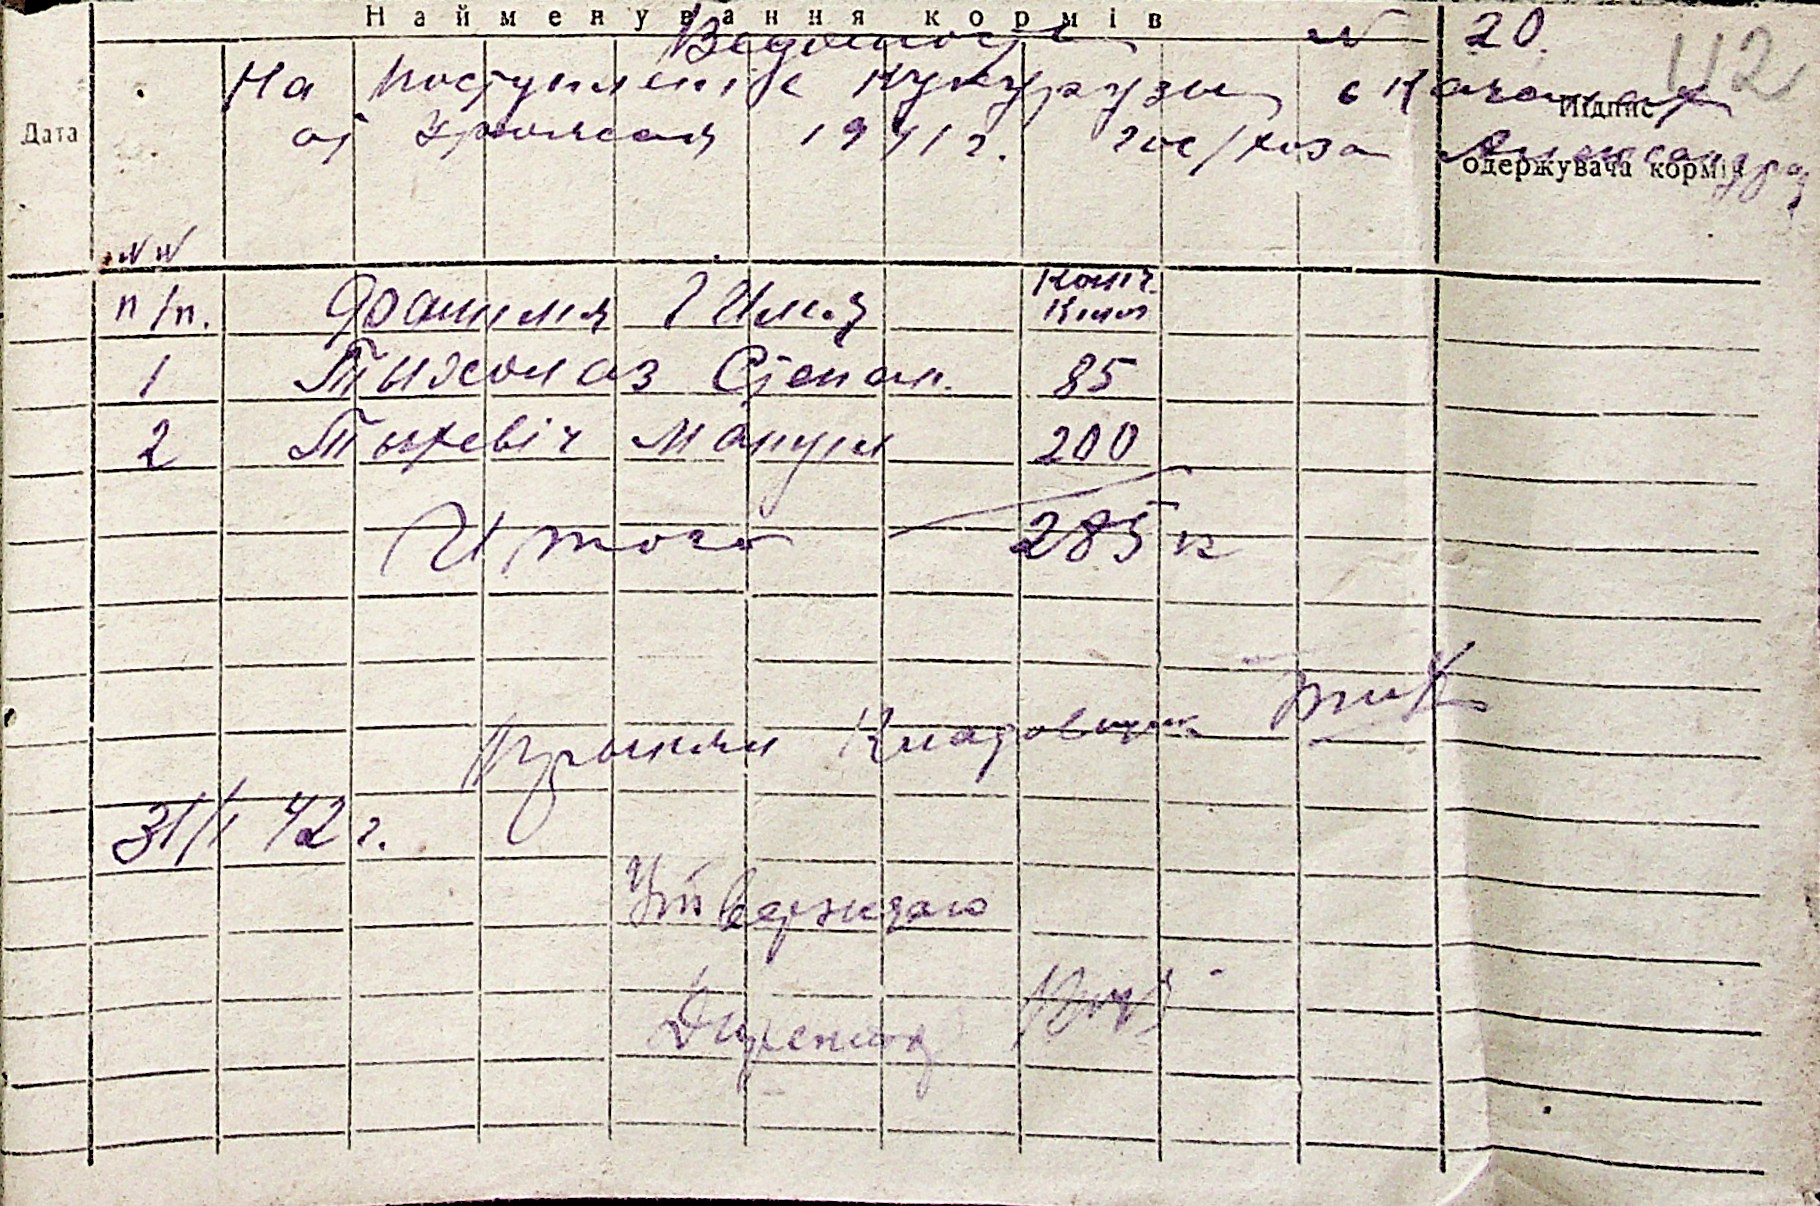 Найменування кормів
Ведомость № 20.
42
На поступленіе кукурузы в качанах
от урожая 1941 г. гос/хоза Александра
Дата
Підпис
одержувача кормів
№№
п/п. Фамилия I Имя Колич. Кило
1 Тихолаз Степан. 85
2 Тыхевіч Манул 200
Итого 285 кг
Прынял Кладовщик Тих
31/I 42 г.
Утверждаю
Директор